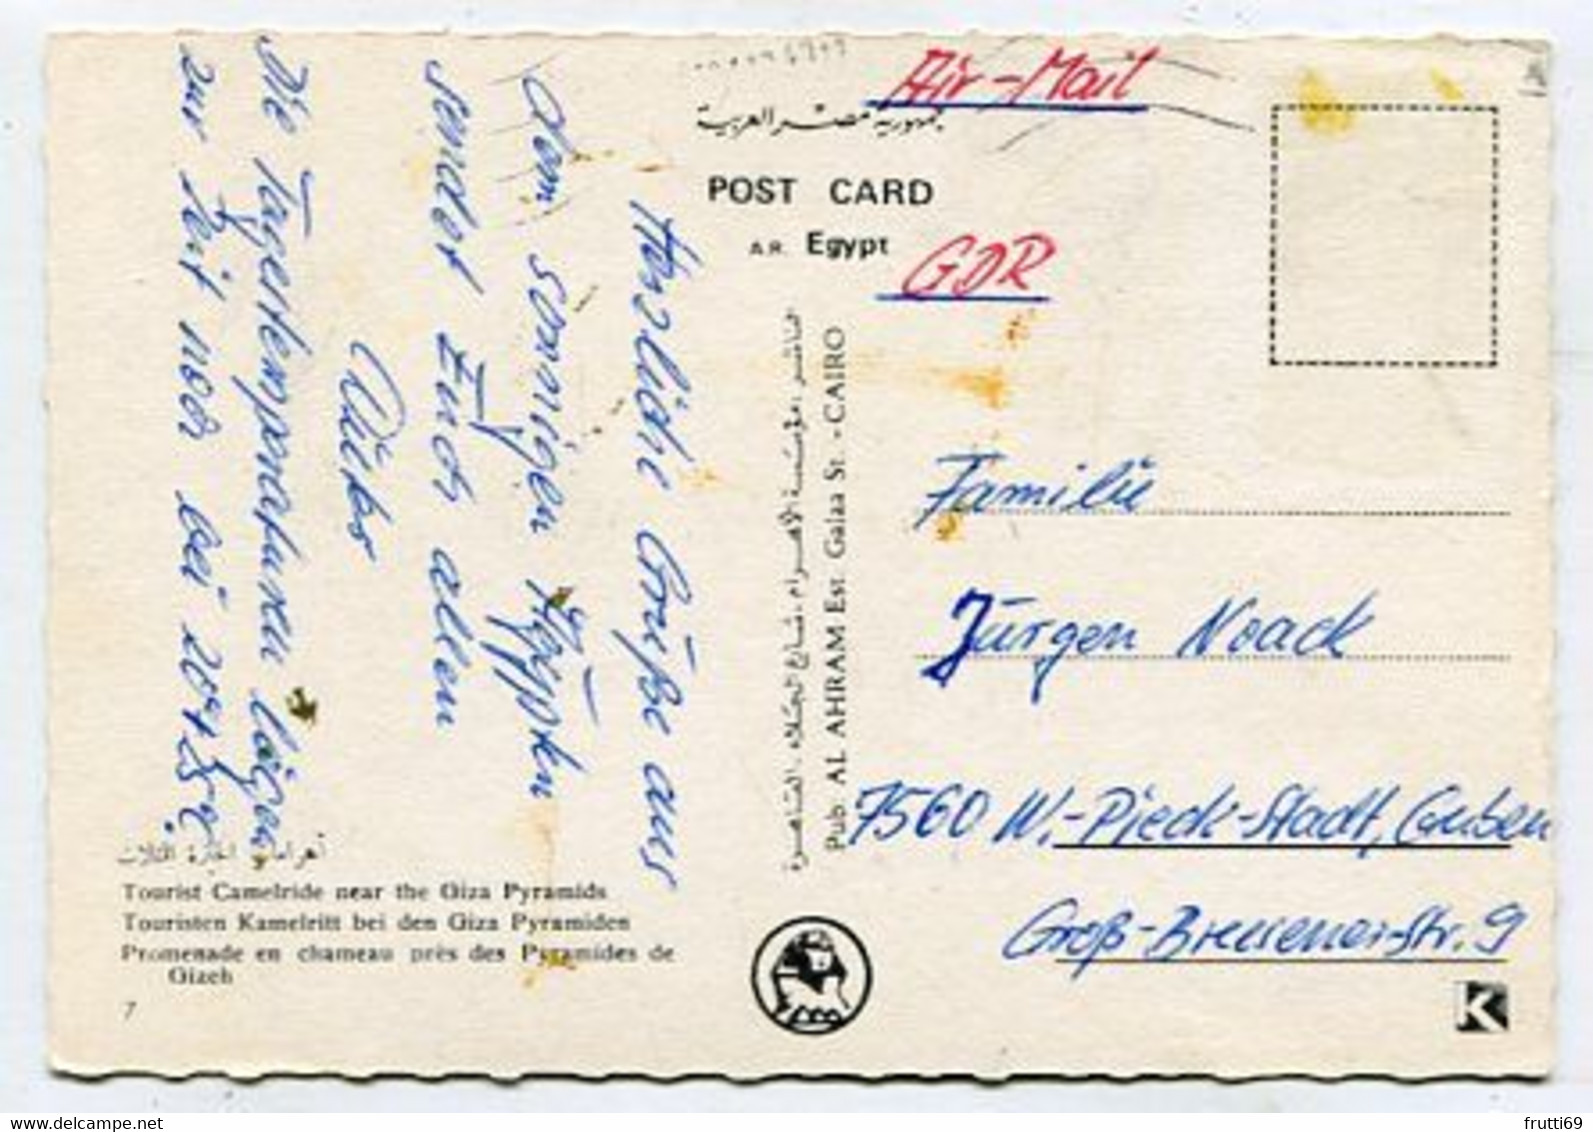 Air-Mail
جمهورية مصر العربية
POST CARD
A.R. Egypt
GDR
Herzliche Grüße aus
dem sonnigen Ägypten
sendet Euch allen
Die Tagestemperaturen liegen
zur Zeit noch bei 20°
الناشر: مؤسسة الأهرام، شارع الجلاء، القاهرة
Pub. AL AHRAM Est. Galaa St. - CAIRO
Familie
Jürgen Noack
7560 W.-Pieck-Stadt, Guben
Groß-Breesener-Str. 9
Tourist Camelride near the Giza Pyramids
Touristen Kamelritt bei den Giza Pyramiden
Promenade en chameau près des Pyramides de
Gizeh
7
K
www.delcampe.net
frutti69